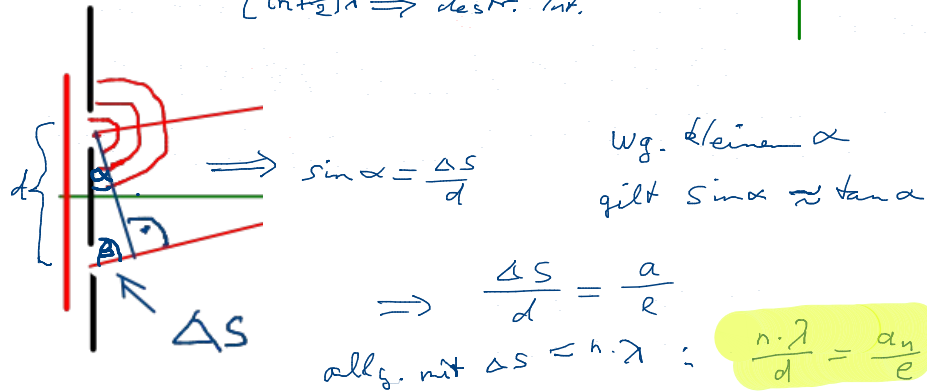 (2n+½)λ ⟹ destr. Int.
d
α
β
ΔS
⟹ sin α = ΔS/d
Wg. kleinen α
gilt sin α ≈ tan α
⟹ ΔS/d = a/e
allg. mit ΔS = n·λ : n·λ/d = aₙ/e